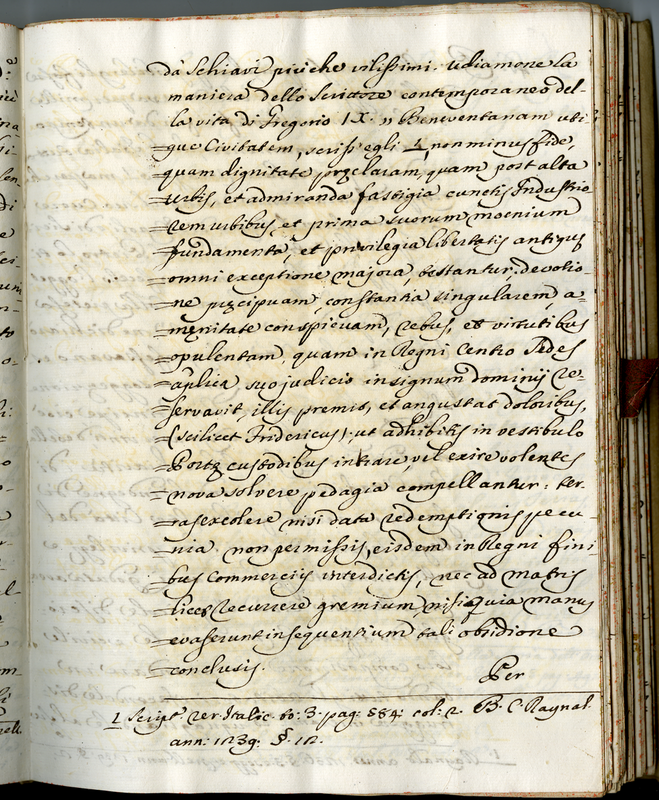 da Schiavi piucche vilissimi. Udiamone la
maniera dello Scrittore contemporaneo del-
la vita di Gregorio IX. „ Beneventanam ubi
= que Civitatem, scriss' egli 1, non minus fide,
= quam dignitate pręclaram, quam post alta
= Urbis, et admiranda fastigia cunctis Industrio
= rem urbibus, et prima suorum moenium
= fundamenta, et privilegia libertatis antiquę
= omni exceptione majora, testantur. devotio-
= ne pręcipuam, constantia singularem, a-
= męnitate conspicuam, rebus, et virtutibus
= opulentam, quam in Regni Centro Sedes
= aplica suo judicio in signum dominij re-
= servavit, illis premis, et angustat doloribus,
= (scilicet Fridericus) ut adhibitis in vestibulo
= Portę custodibus intrare, vel exire volentes
= nova solvere pedagia compellantur: ter-
= ras excolere nisi data redemptionis pecu-
= nia non permissis, eisdem in Regni fini
= bus Commercijs interdictis, nec ad Matris
= licet recurrere gremium nisi quia manus
= evaserunt insequentium tali obsidione
= conclusis.
Per
1 Script. rer. Italic. to: 3. pag: 584: col: 2. B. C. Raynal.
ann: 1239. §. 12.